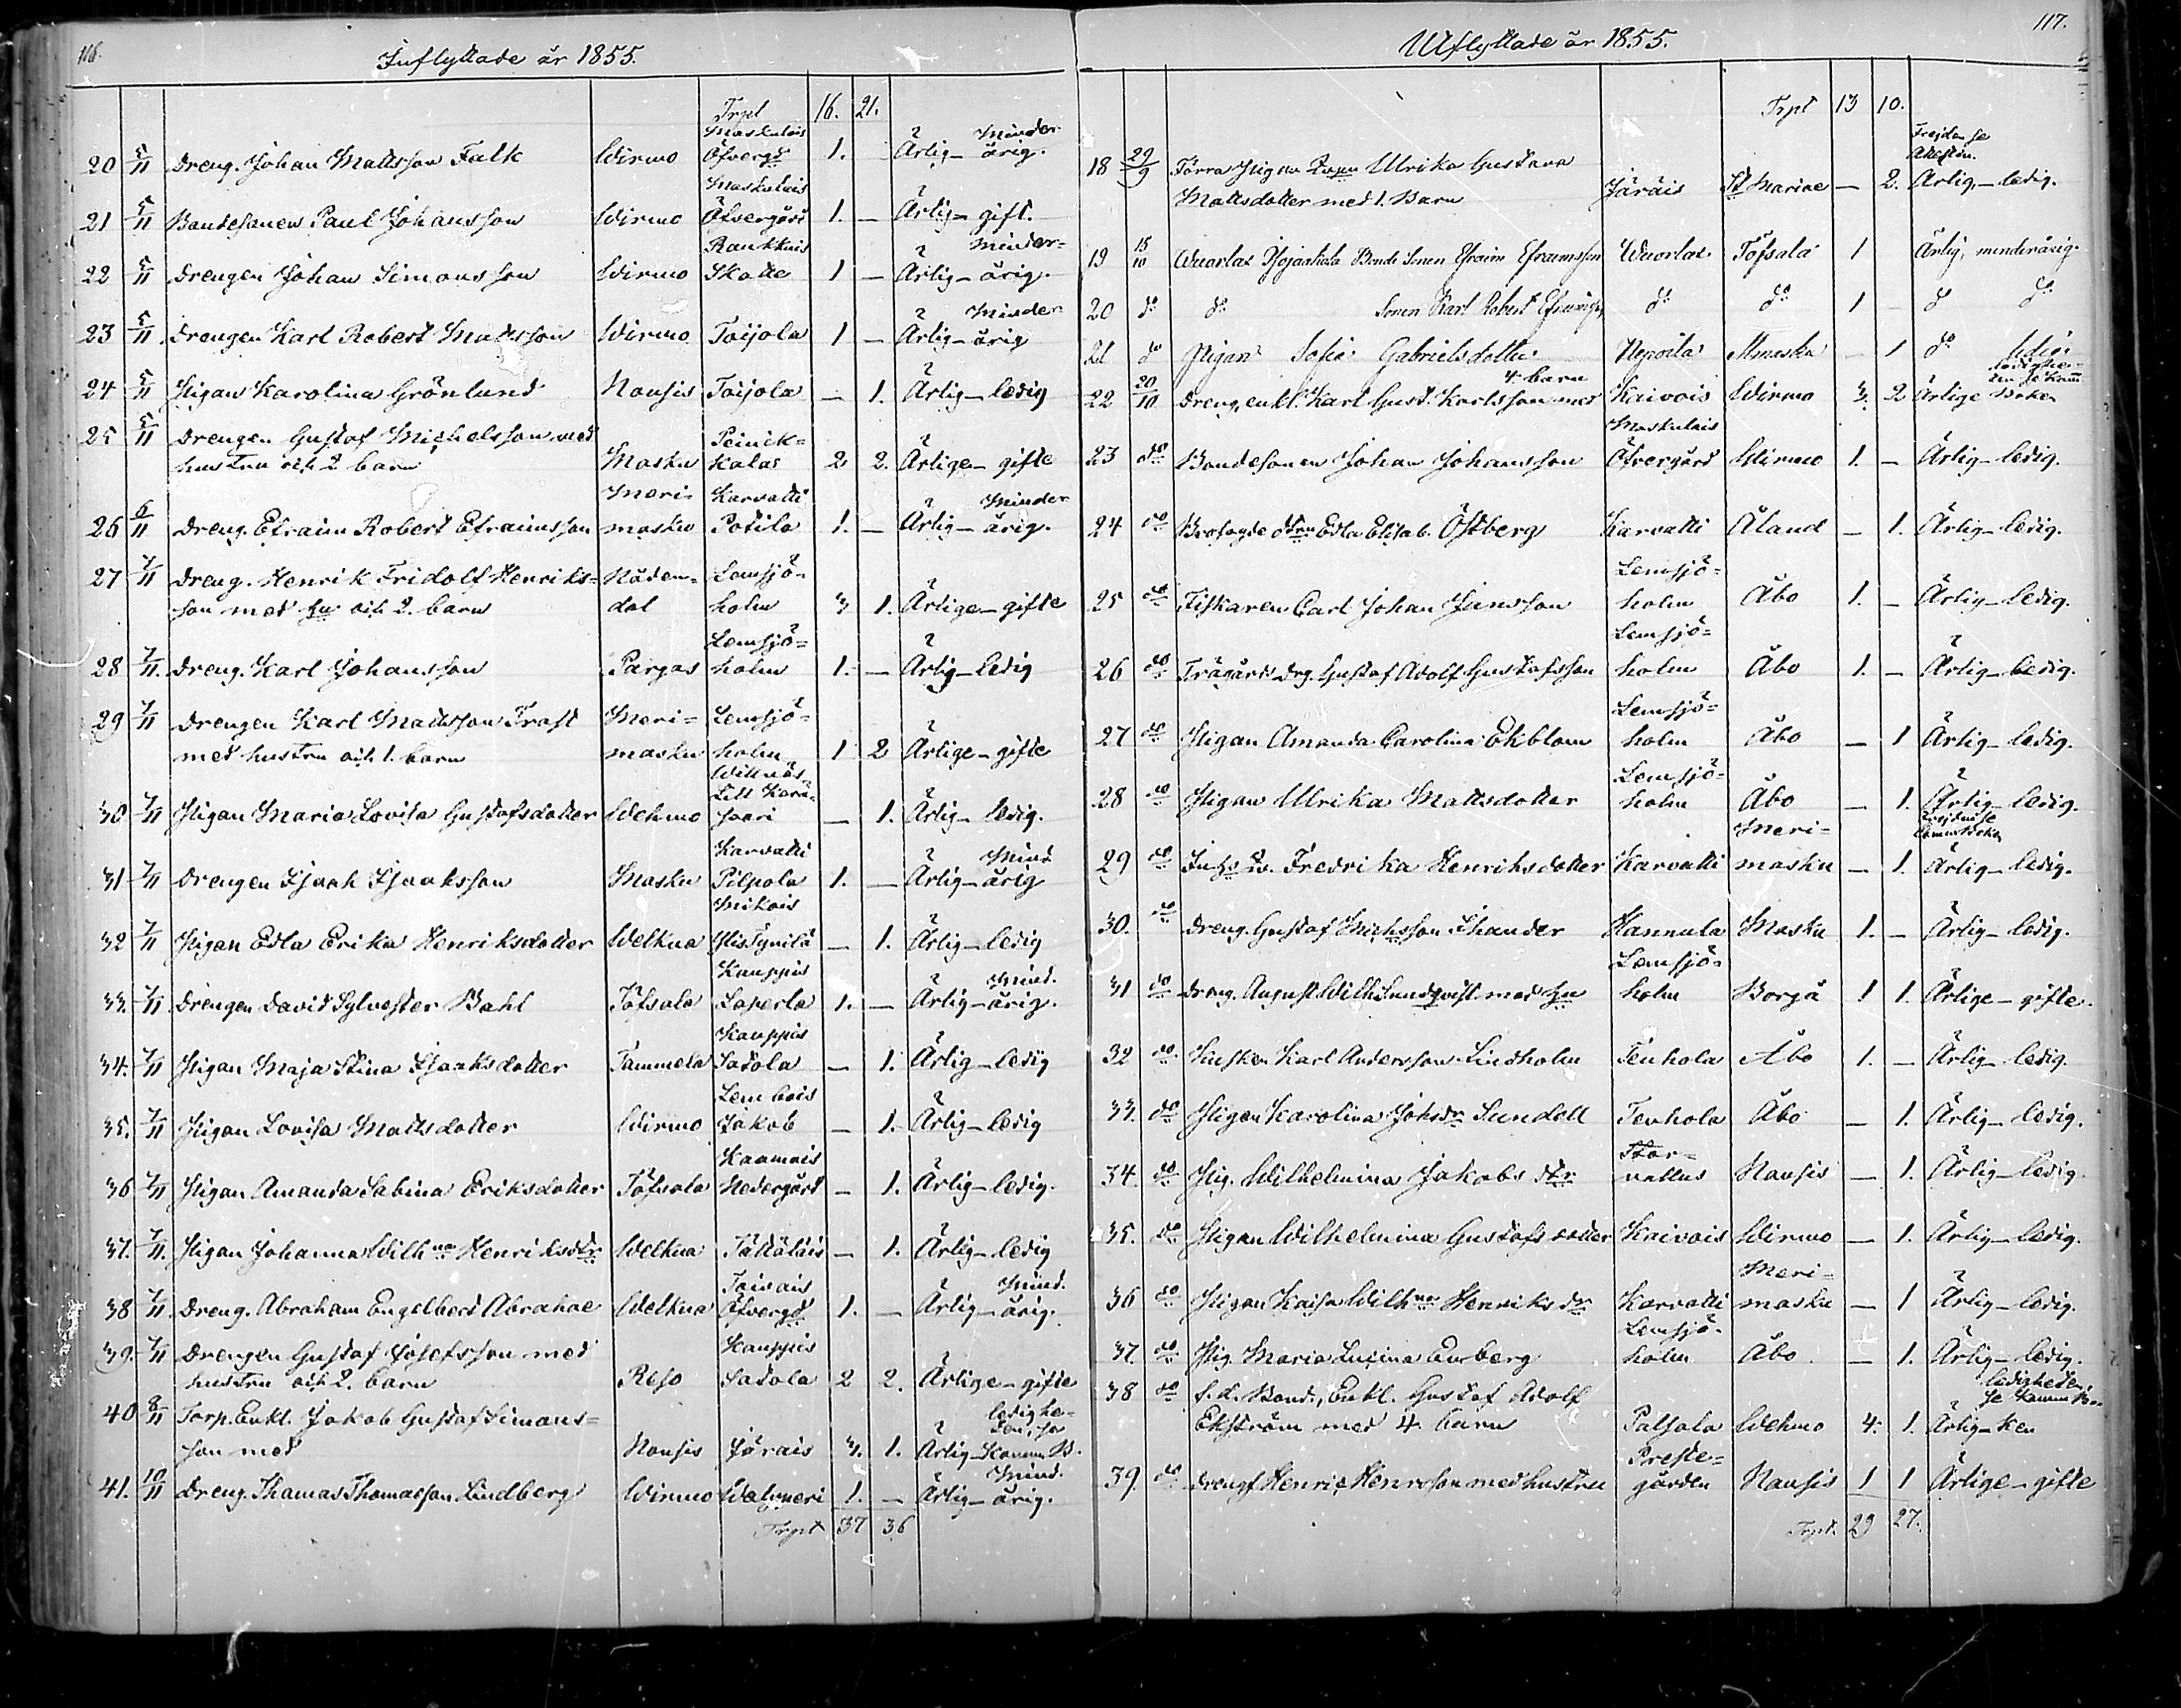 116.
Inflyttade år 1855.
Trpt 16. 21.
20 5/11 Dreng. Johan Mattsson Falk Wirmo Maskulais Öfvergd 1. Ärlig - Minderårig.
21 5/11 Bondesonen Paul Johansson Wirmo Maskulais Öfvergård 1. - Ärlig - gift.
22 5/11 Drengen Johan Simonsson Wirmo Raukkais Skotte 1 - Ärlig - minder=årig.
23 5/11 Drengen Karl Robert Mattsson Wirmo Toijola 1 - Ärlig - Minderårig
24 5/11 Pigan Karolina Grönlund Nousis Toijola - 1. Ärlig - ledig
25 5/11 Drengen Gustaf Michelsson med
hustru och 2 barn Masku Peinik=kalas 2 2. Ärlige - gifte
26 6/11 Dreng. Efraim Robert Efraimsson Meri-masku Karvatti Potila 1. - Ärlig - Minderårig.
27 7/11 Dreng. Henrik Fridolf Henriks=
son med hu och 2. barn Nådendal Lemsjö=holm 3 1. Ärlige - gifte
28 7/11. Dreng. Karl Johansson Pargas Lemsjö=holm 1. - Ärlig - ledig
29 7/11 Drengen Karl Mattsson Frost
med hustru och 1. barn Meri-masku Lemsjö=holm 1 2 Ärlige - gifte
30 7/11 Pigan Maria Lovisa Gustafsdotter Wehmo Willnäs Lill Karu=saari - 1. Ärlig - ledig.
31 7/11 Drengen Isaak Isaaksson Masku Karvatti Pilpola 1. - Ärlig - Mind.årig
32 7/11 Pigan Edla Erika Henriksdotter Welkua Mikois Ylistynilä - 1. Ärlig - ledig
33. 7/11 Drengen David Sylvester Bahl Töfsala Kauppis Laperla 1. - Ärlig - Mind.årig.
34. 7/11 Pigan Maja Stina Isaaksdotter Tammela Kauppis Satola - 1. Ärlig - ledig
35. 7/11 Pigan Lovisa Mattsdotter Wirmo Lembois Jakob - 1. Ärlig - ledig
36 7/11 Pigan Amanda Sabina Eriksdotter Töfsala Kaamais Nedergård - 1. Ärlig - ledig.
37. 7/11. Pigan Johanna Wilhna Henriksdtr Welkua Tättäläis - 1. Ärlig - ledig
38 7/11 Dreng. Abraham Engelbert Abrahae Welkua Taivais Öfvergd 1. - Ärlig - Mind.årig.
39. 7/11 Drengen Gustaf Josefsson med
hustru och 2. barn Reso Kauppis Satola 2 2. Ärlige - gifte
40 8/11 Torp. Enkl. Jakob Gustaf Simons=
son med Nousis Järais 3. 1. Ärlig - ledighe-ten, se Komm B.
41. 10/11 Dreng. Thomas Thomasson Lindberg Wirmo Walmeri 1. - Ärlig - Mind.årig.
Trpt 37 36
117.
Utflyttade år 1855.
Trpt 13 10.
18 29/9 Förra Pigan Ulrika Gustava
Mattsdotter med 1. Barn Järäis St Marine - 2. Frejden se Attesten. Ärlig - ledig.
19 15/10 Wuorlax Pojaskola Bonde Sonen Efraim Efraimsson Wuorlax Töfsala 1 Ärlig, minderårig.
20 do do Sonen Karl Robert Efraimss. do do 1 - do do
21 do Pigan Sofia Gabrielsdotter Nepoila Amaska - 1 do ledig
22 20/10 Dreng, enkl. Karl Gust. Karlsson med 4. barn Kaivois Wirmo 3. 2 Ärlige ledighe-ten se Komm Boken
23 do Bondesonen Johan Johansson Maskulais Öfvergård Wirmo 1. - Ärlig - ledig.
24 do Brofogde dtrn Edla Elisab. Östberg Karvatti Åland - 1. Ärlig - ledig.
25 do Fiskaren Carl Johan Jansson Lemsjö=holm Åbo 1. - Ärlig - ledig.
26 do Trägårds Drg. Gustaf Adolf Gustafsson Lemsjö=holm Åbo 1. - Ärlig - ledig.
27 do Pigan Amanda Carolina Ekblom Lemsjö=holm Åbo - 1 Ärlig - ledig.
28 do Pigan Ulrika Mattsdotter Lemsjö=holm Åbo - 1. Ärlig - ledig.
29 do Inhs Fredrika Henriksdotter Karvatti Meri-masku - 1. Frejden se Comm Boken Ärlig - ledig.
30. do Dreng. Gustaf Michsson Thander Hannula Masku 1. - Ärlig - ledig.
31 do Dreng. August Wilh Lundqvist med hu Lemsjö=holm Borgå 1 1. Ärlige - gifte.
32 do Kusken Karl Andersson Lindholm Tenhola Åbo 1. - Ärlig - ledig.
33. do Pigan Karolina Johsdr Sundell Tenhola Åbo - 1. Ärlig - ledig.
34. do Pig. Wilhelmina Jakobs dtr Stor=nallus Nousis - 1. Ärlig - ledig.
35. do Pigan Wilhelmina Gustafsdotter Kaivois Wirmo - 1. Ärlig - ledig.
36 do Pigan Kaisa Wilhna Henriks dr Karvatti Meri=masku - 1 Ärlig - ledig.
37. do Pig. Maria Lucina Enberg Lemsjö-holm Åbo - 1. Ärlig - ledig.
38 do f.d. Bond., Enkl. Gustaf Adolf
Ekström med 4 barn Palsala Wehmo 4. 1. Ärlig - ledigheten, se Komm Boken
39. do Drengf Henric Henrsson med hustru Preste=gården Nousis 1 1 Ärlige - gifte
Trpt. 29 27.